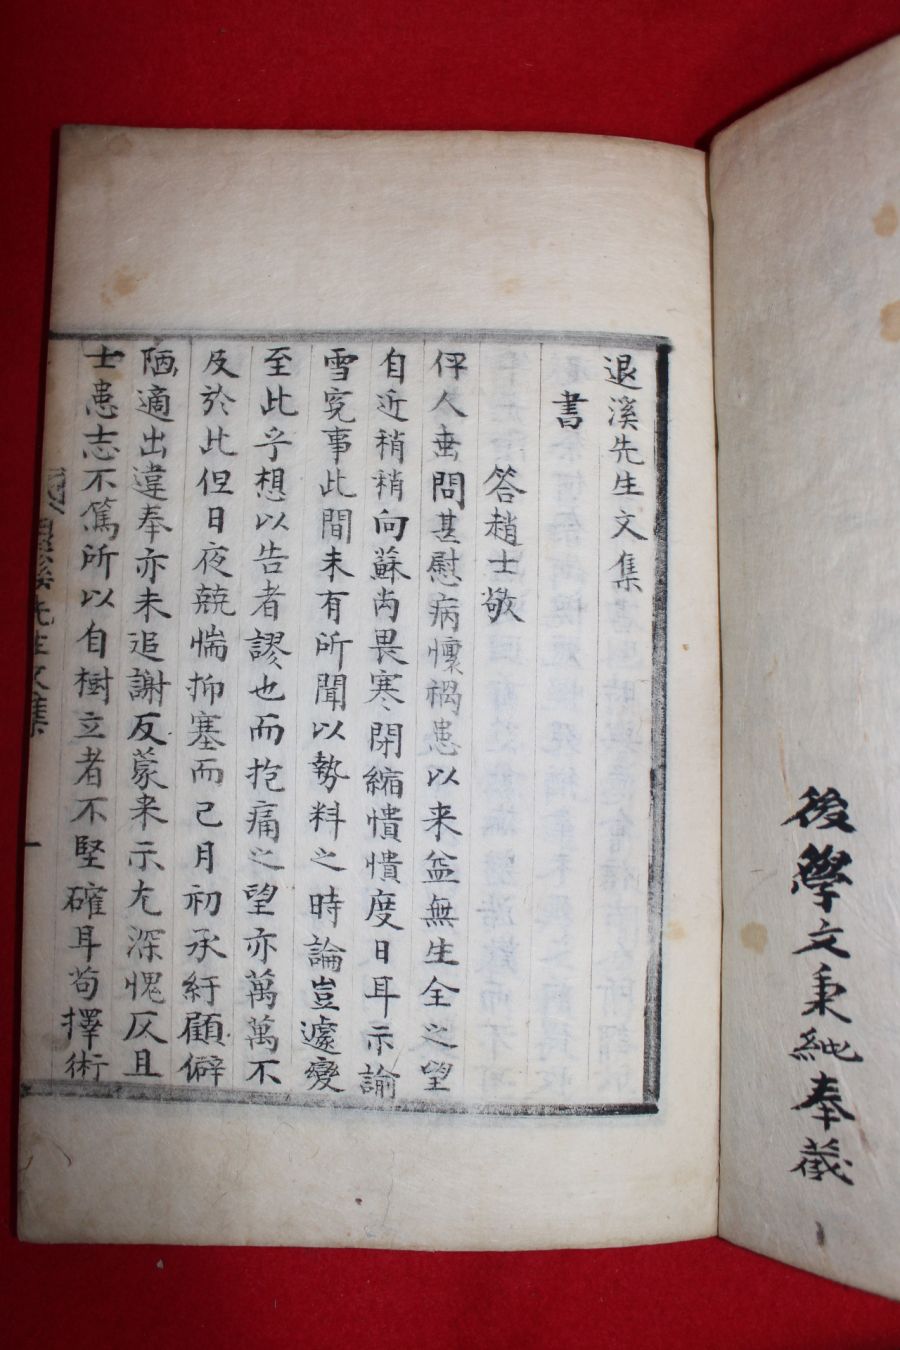 後學文秉純奉藏
退溪先生文集
書
答趙士敬
伻人垂問甚慰病懷稠患以来益無生全之望
自近稍稍向蘇尚畏寒閉縮憒憒度日耳示諭
雪寃事此間未有所聞以勢料之時論豈遽變
至此乎想以告者謬也而抱痛之望亦萬萬不
及於此但日夜兢惴抑塞而已月初承紆顧僻
陋適出違奉亦未追謝反蒙来示尢深愧仄且
士患志不篤所以自樹立者不堅確耳苟擇術
退溪先生文集
一